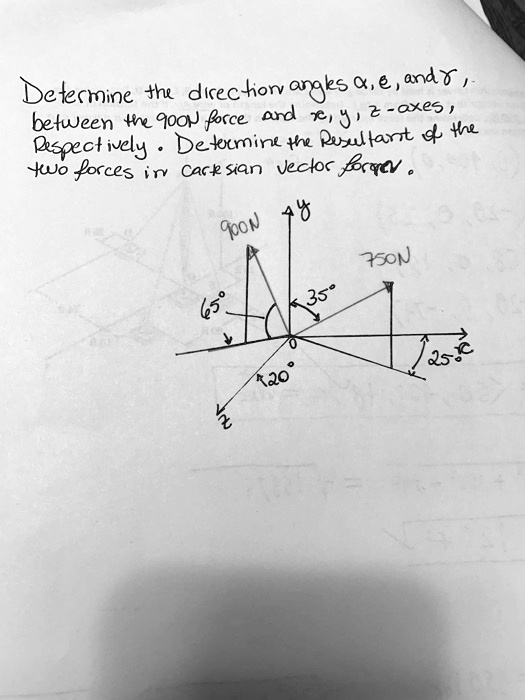 Determine the direction angles α, θ, and γ,
between the 900N force and x, y, z-axes,
Respectively. Determine the Resultant of the
two forces in cartesian vector form.
900N
y
750N
65°
35°
0
x
25°
20°
z